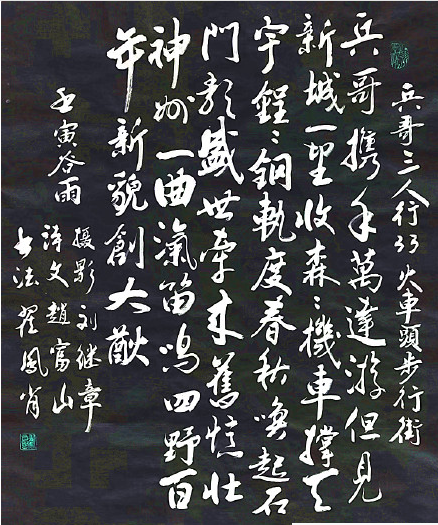 兵哥三人行33火車頭步行街
兵哥攜手萬達游但見
新城一望收森〻機車撐天
宇鏗〻鋼軌度春秋喚起石
門彰盛世牽來舊憶壯
神州一曲滊笛鳴四野百
年新貌創大猷
壬寅谷雨
攝影刘继章
詩文趙富山
书法翟風肖